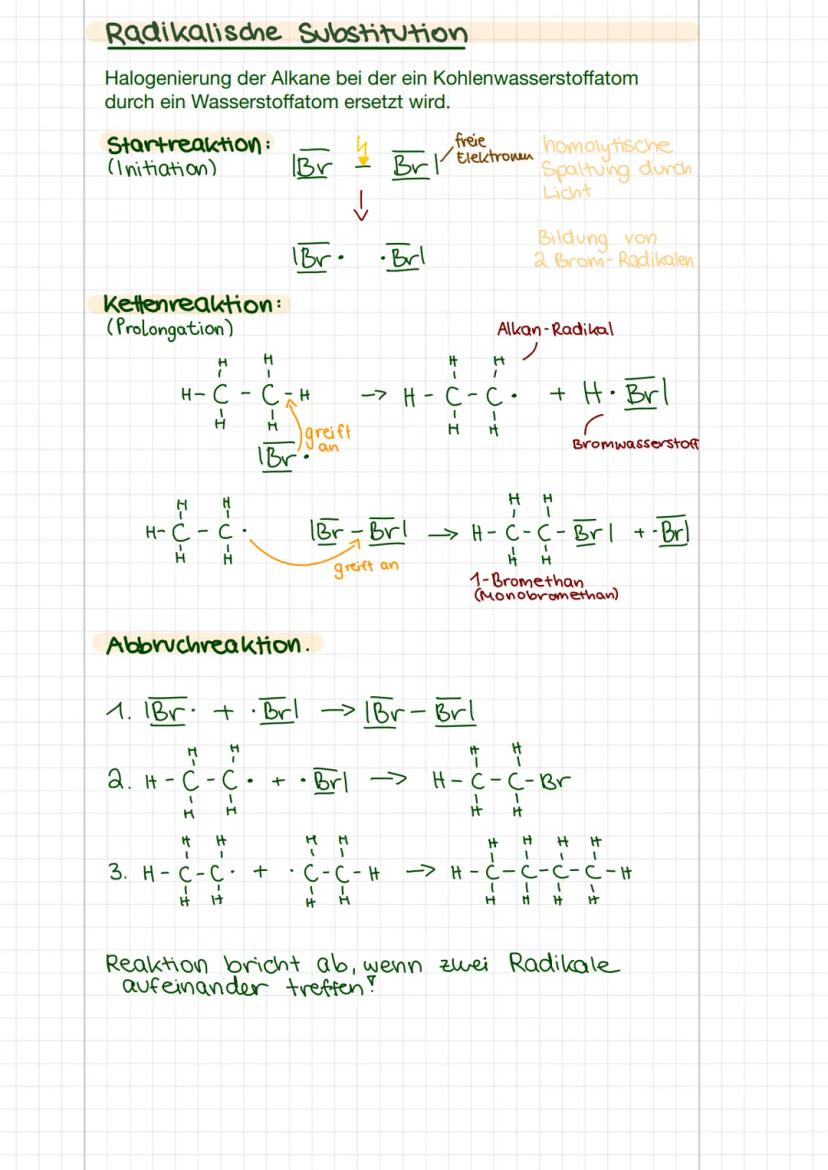 Radikalische Substitution
Halogenierung der Alkane bei der ein Kohlenwasserstoffatom
durch ein Wasserstoffatom ersetzt wird.
Startreaktion:
(Initiation)
|Br – Br|
freie
Elektronen
homolytische
Spaltung durch
Licht
|Br· ·Br|
Bildung von
2 Brom-Radikalen
Kettenreaktion:
(Prolongation)
Alkan-Radikal
H H H H
H – C – C – H → H – C – C · + H · Br|
H H H H
greift
an
|Br ·
Bromwasserstoff
H H H H
H – C – C · |Br – Br| → H – C – C – Br| + ·Br|
H H H H
greift an
1-Bromethan
(Monobromethan)
Abbruchreaktion.
1. |Br · + · Br| → |Br – Br|
H H H H
2. H – C – C · + · Br| → H – C – C – Br
H H H H
H H H H H H H H
3. H – C – C · + · C – C – H → H – C – C – C – C – H
H H H H H H H H
Reaktion bricht ab, wenn zwei Radikale
aufeinander treffen!